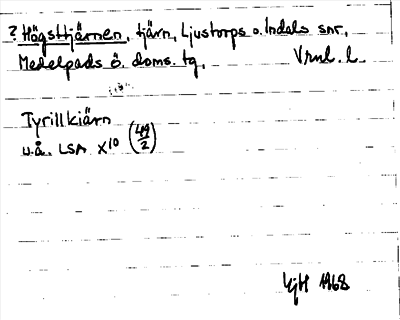 ? Högsttjärnen, tjärn, Ljustorps o. Indals snr,
Medelpads ö. doms. tg, Vrnl. l.
Tyrillkiärn
u.å. LSA X10 (49/2)
1968